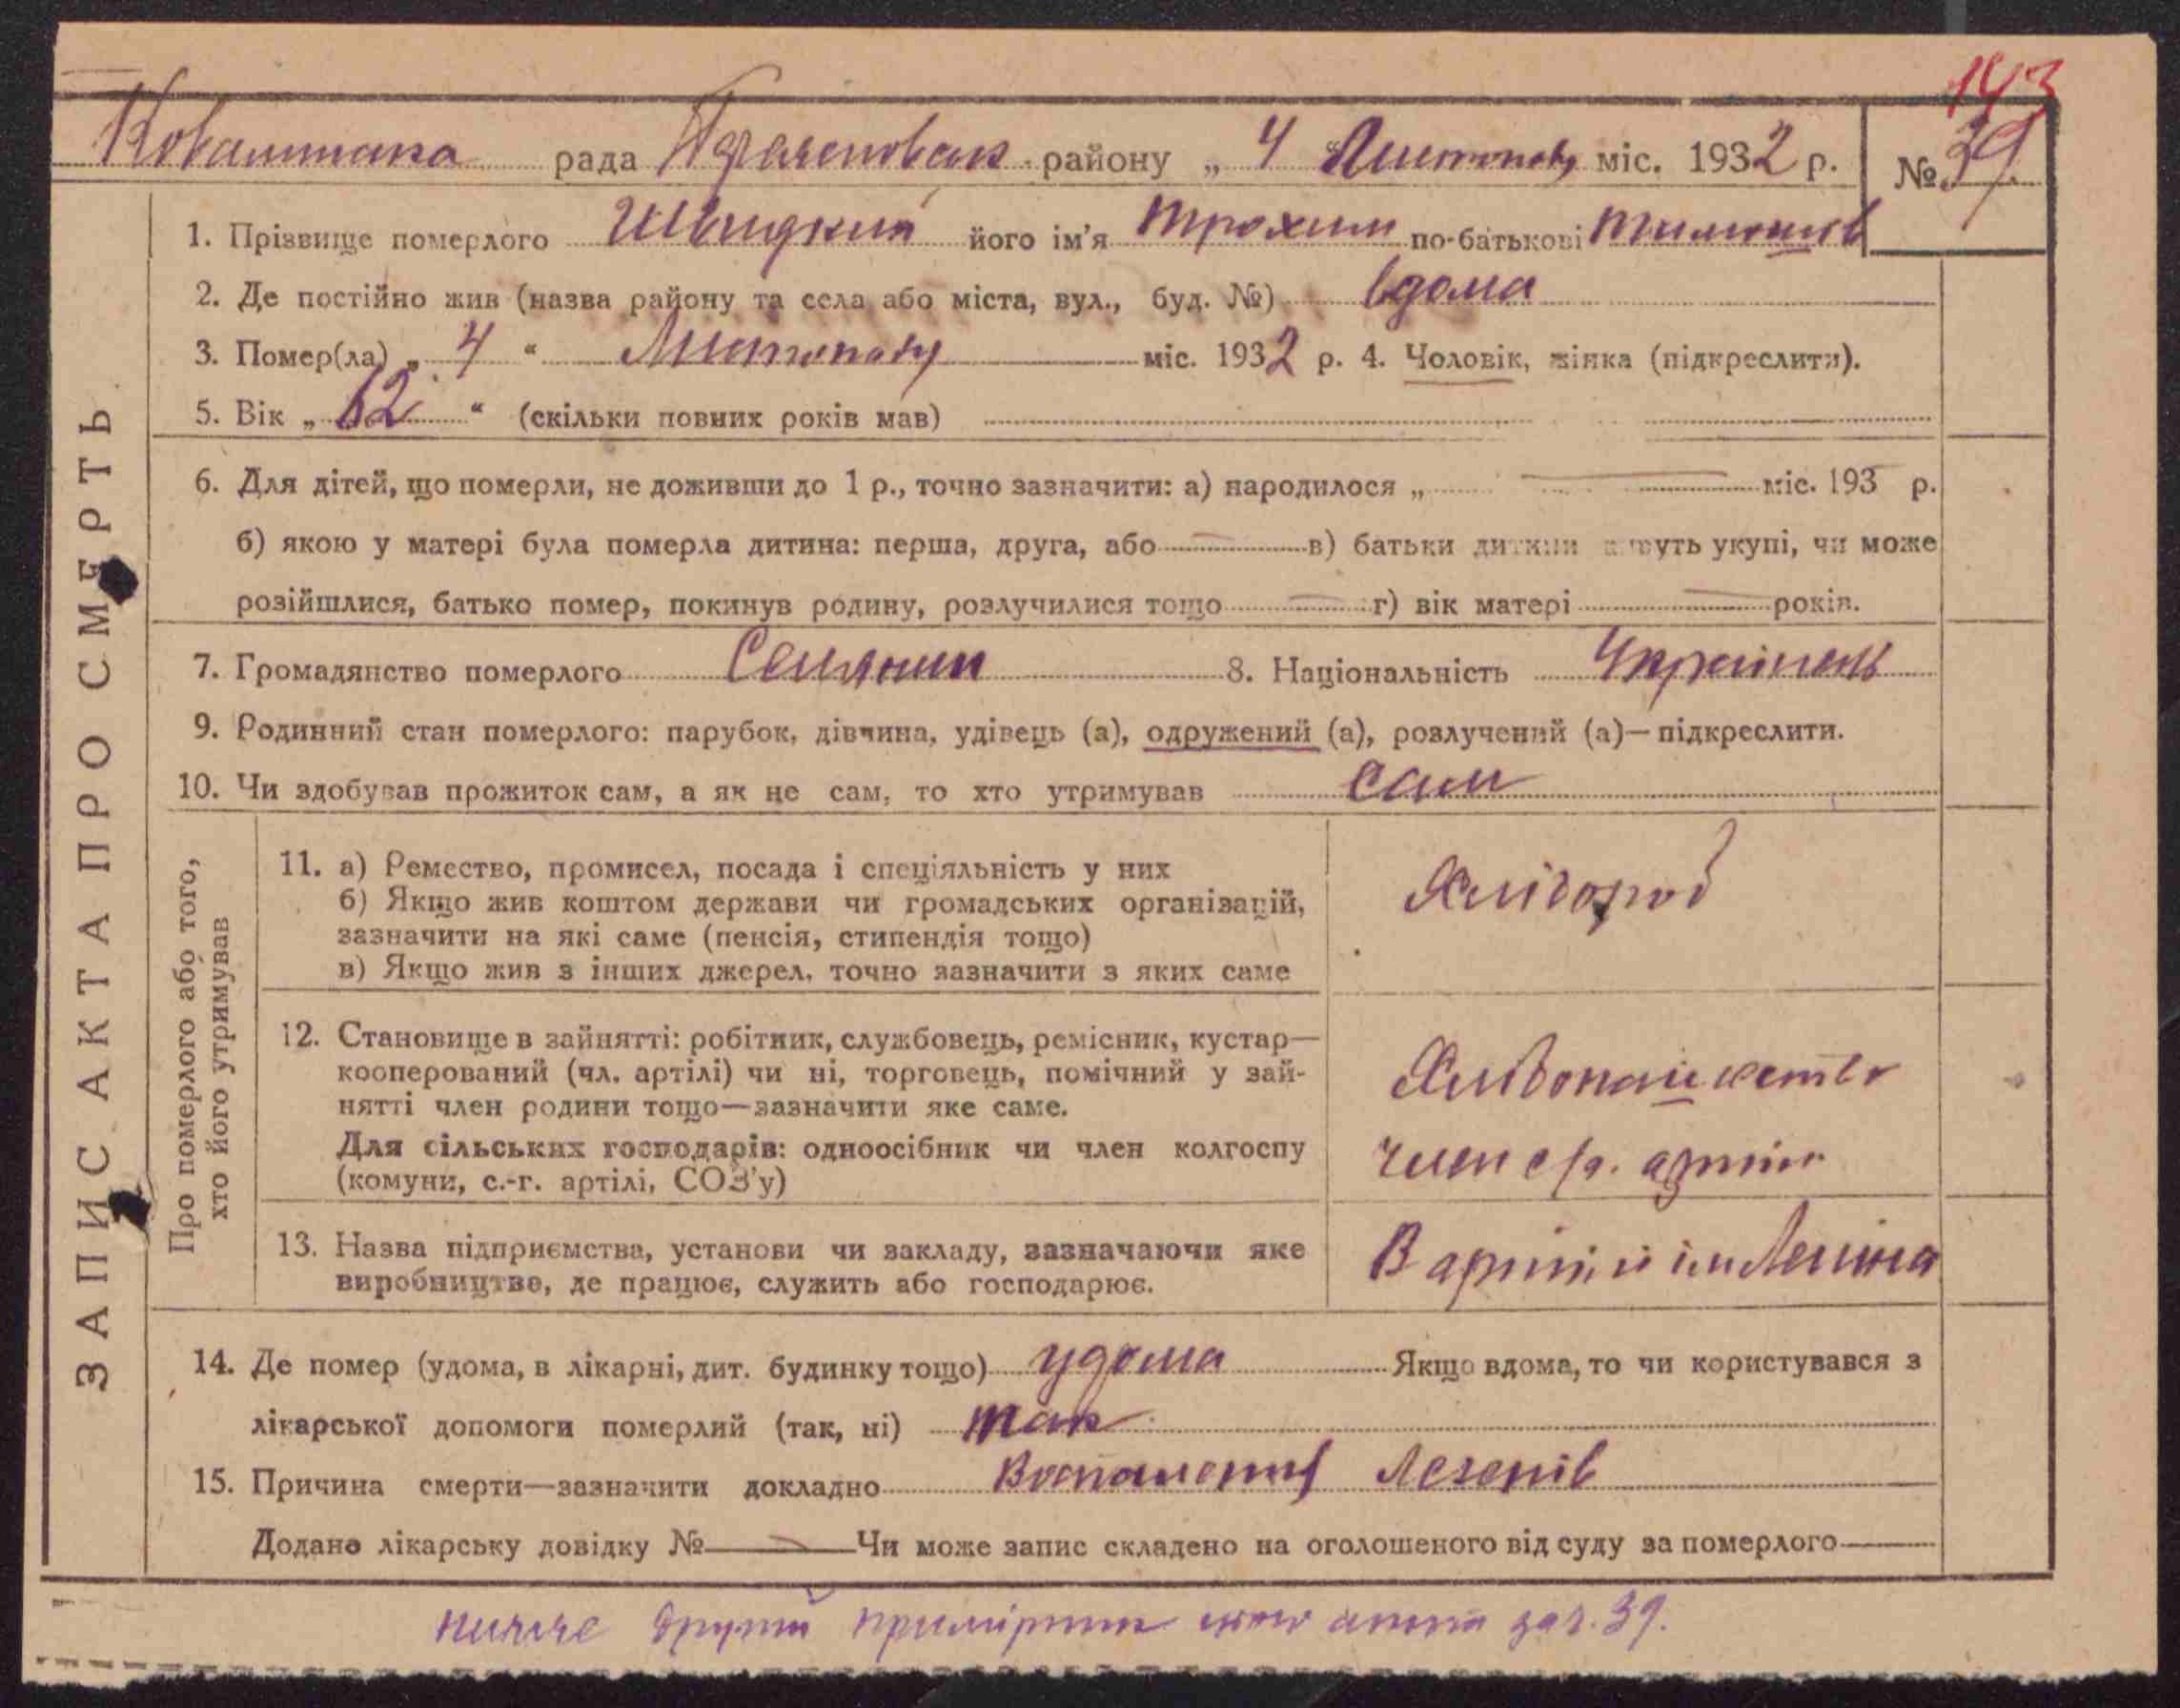 143
рада району „ 4 “ Листопаду міс. 1932 р. № 39
1. Прізвище померлого Швидкий його ім'я Трохим по-батькові
2. Де постійно жив (назва району та села або міста, вул., буд. №) вдома
3. Помер(ла) „ 4 “ Листопаду міс. 1932 р. 4. Чоловік, жінка (підкреслити).
5. Вік „ 62 “ (скільки повних років мав)
6. Для дітей, що померли, не доживши до 1 р., точно зазначити: а) народилося „ міс. 193 р.
б) якою у матері була померла дитина: перша, друга, або в) батьки дитини живуть укупі, чи може
розійшлися, батько помер, покинув родину, розлучилися тощо г) вік матері років.
7. Громадянство померлого Селянин 8. Національність Українець
9. Родинний стан померлого: парубок, дівчина, удівець (а), одружений (а), розлучений (а)—підкреслити.
10. Чи здобував прожиток сам, а як не сам, то хто утримував сам
ЗАПИС АКТА ПРО СМЕРТЬ
Про померлого або того,
хто його утримував
11. а) Ремество, промисел, посада і спеціяльність у них
б) Якщо жив коштом держави чи громадських організацій,
зазначити на які саме (пенсія, стипендія тощо)
в) Якщо жив з інших джерел, точно зазначити з яких саме
Хлібороб
12. Становище в зайнятті: робітник, службовець, ремісник, кустар—
кооперований (чл. артілі) чи ні, торговець, помічний у зай-
нятті член родини тощо—зазначити яке саме.
Для сільських господарів: одноосібник чи член колгоспу
(комуни, с.-г. артілі, СОЗ'у)
член с/г. артілі
13. Назва підприємства, установи чи закладу, зазначаючи яке
виробництво, де працює, служить або господарює.
В артілі ім Леніна
14. Де помер (удома, в лікарні, дит. будинку тощо) удома Якщо вдома, то чи користувався з
лікарської допомоги померлий (так, ні) так
15. Причина смерти—зазначити докладно Воспаления Легенів
Додано лікарську довідку № Чи може запис складено на оголошеного від суду за померлого
другий 39.